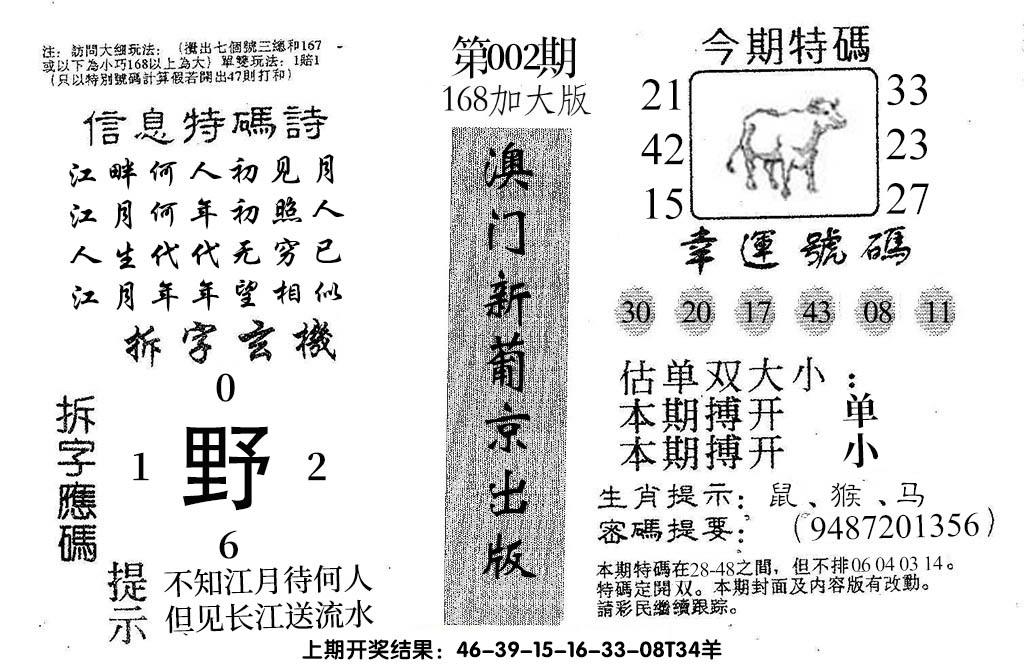 注：訪問大細玩法：（攪出七個號三總和167
或以下為小巧168以上為大）單雙玩法：1賠1
（只以特別號碼計算假若開出47則打和）
信息特碼詩
江畔何人初见月
江月何年初照人
人生代代无穷已
江月年年望相似
拆字玄機
拆字應碼
0
1 野 2
6
提示
不知江月待何人
但见长江送流水
第002期
168加大版
澳门新葡京出版
今期特碼
21
42
15
33
23
27
幸運號碼
30 20 17 43 08 11
估单双大小：
本期搏开 单
本期搏开 小
生肖提示：鼠、猴、马
密碼提要：（9487201356）
本期特碼在28-48之間，但不排06 04 03 14。
特碼定開双。本期封面及内容版有改動。
請彩民繼續跟踪。
上期开奖结果：46-39-15-16-33-08T34羊